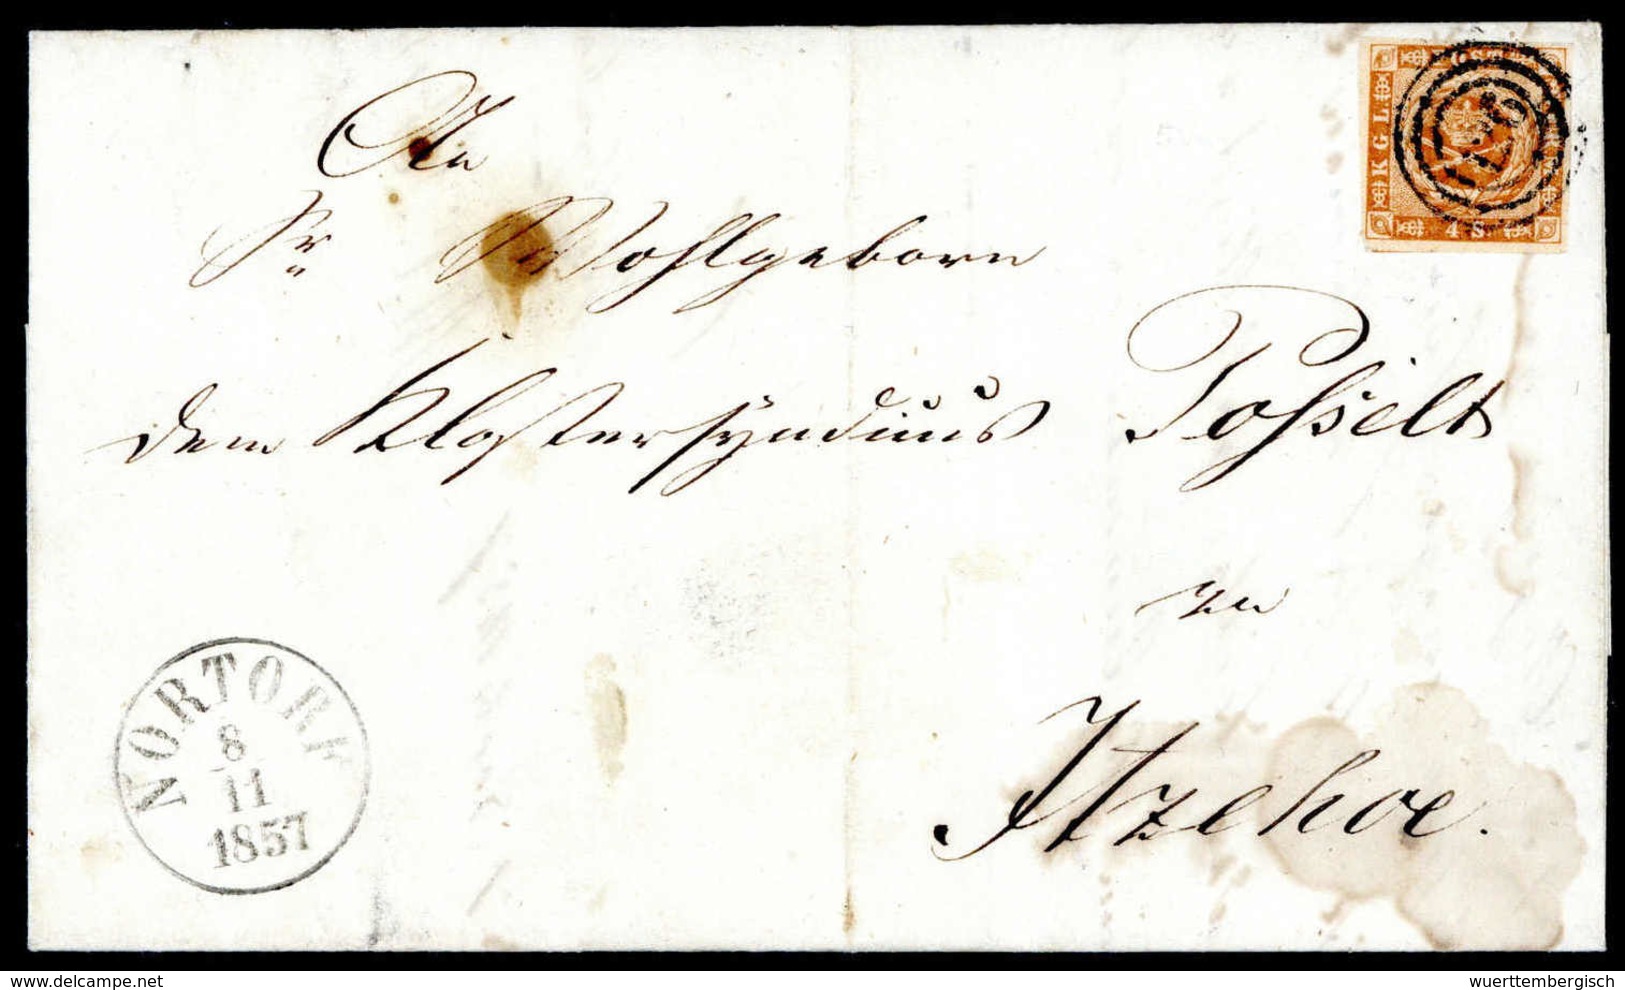 An
Sr Wohlgeborn
dem Klostersyndicus Posselt
zu
Itzehoe.
KGL
4 S
NORTORF
8
11
1857
delcampe.net
wuerttembergisch